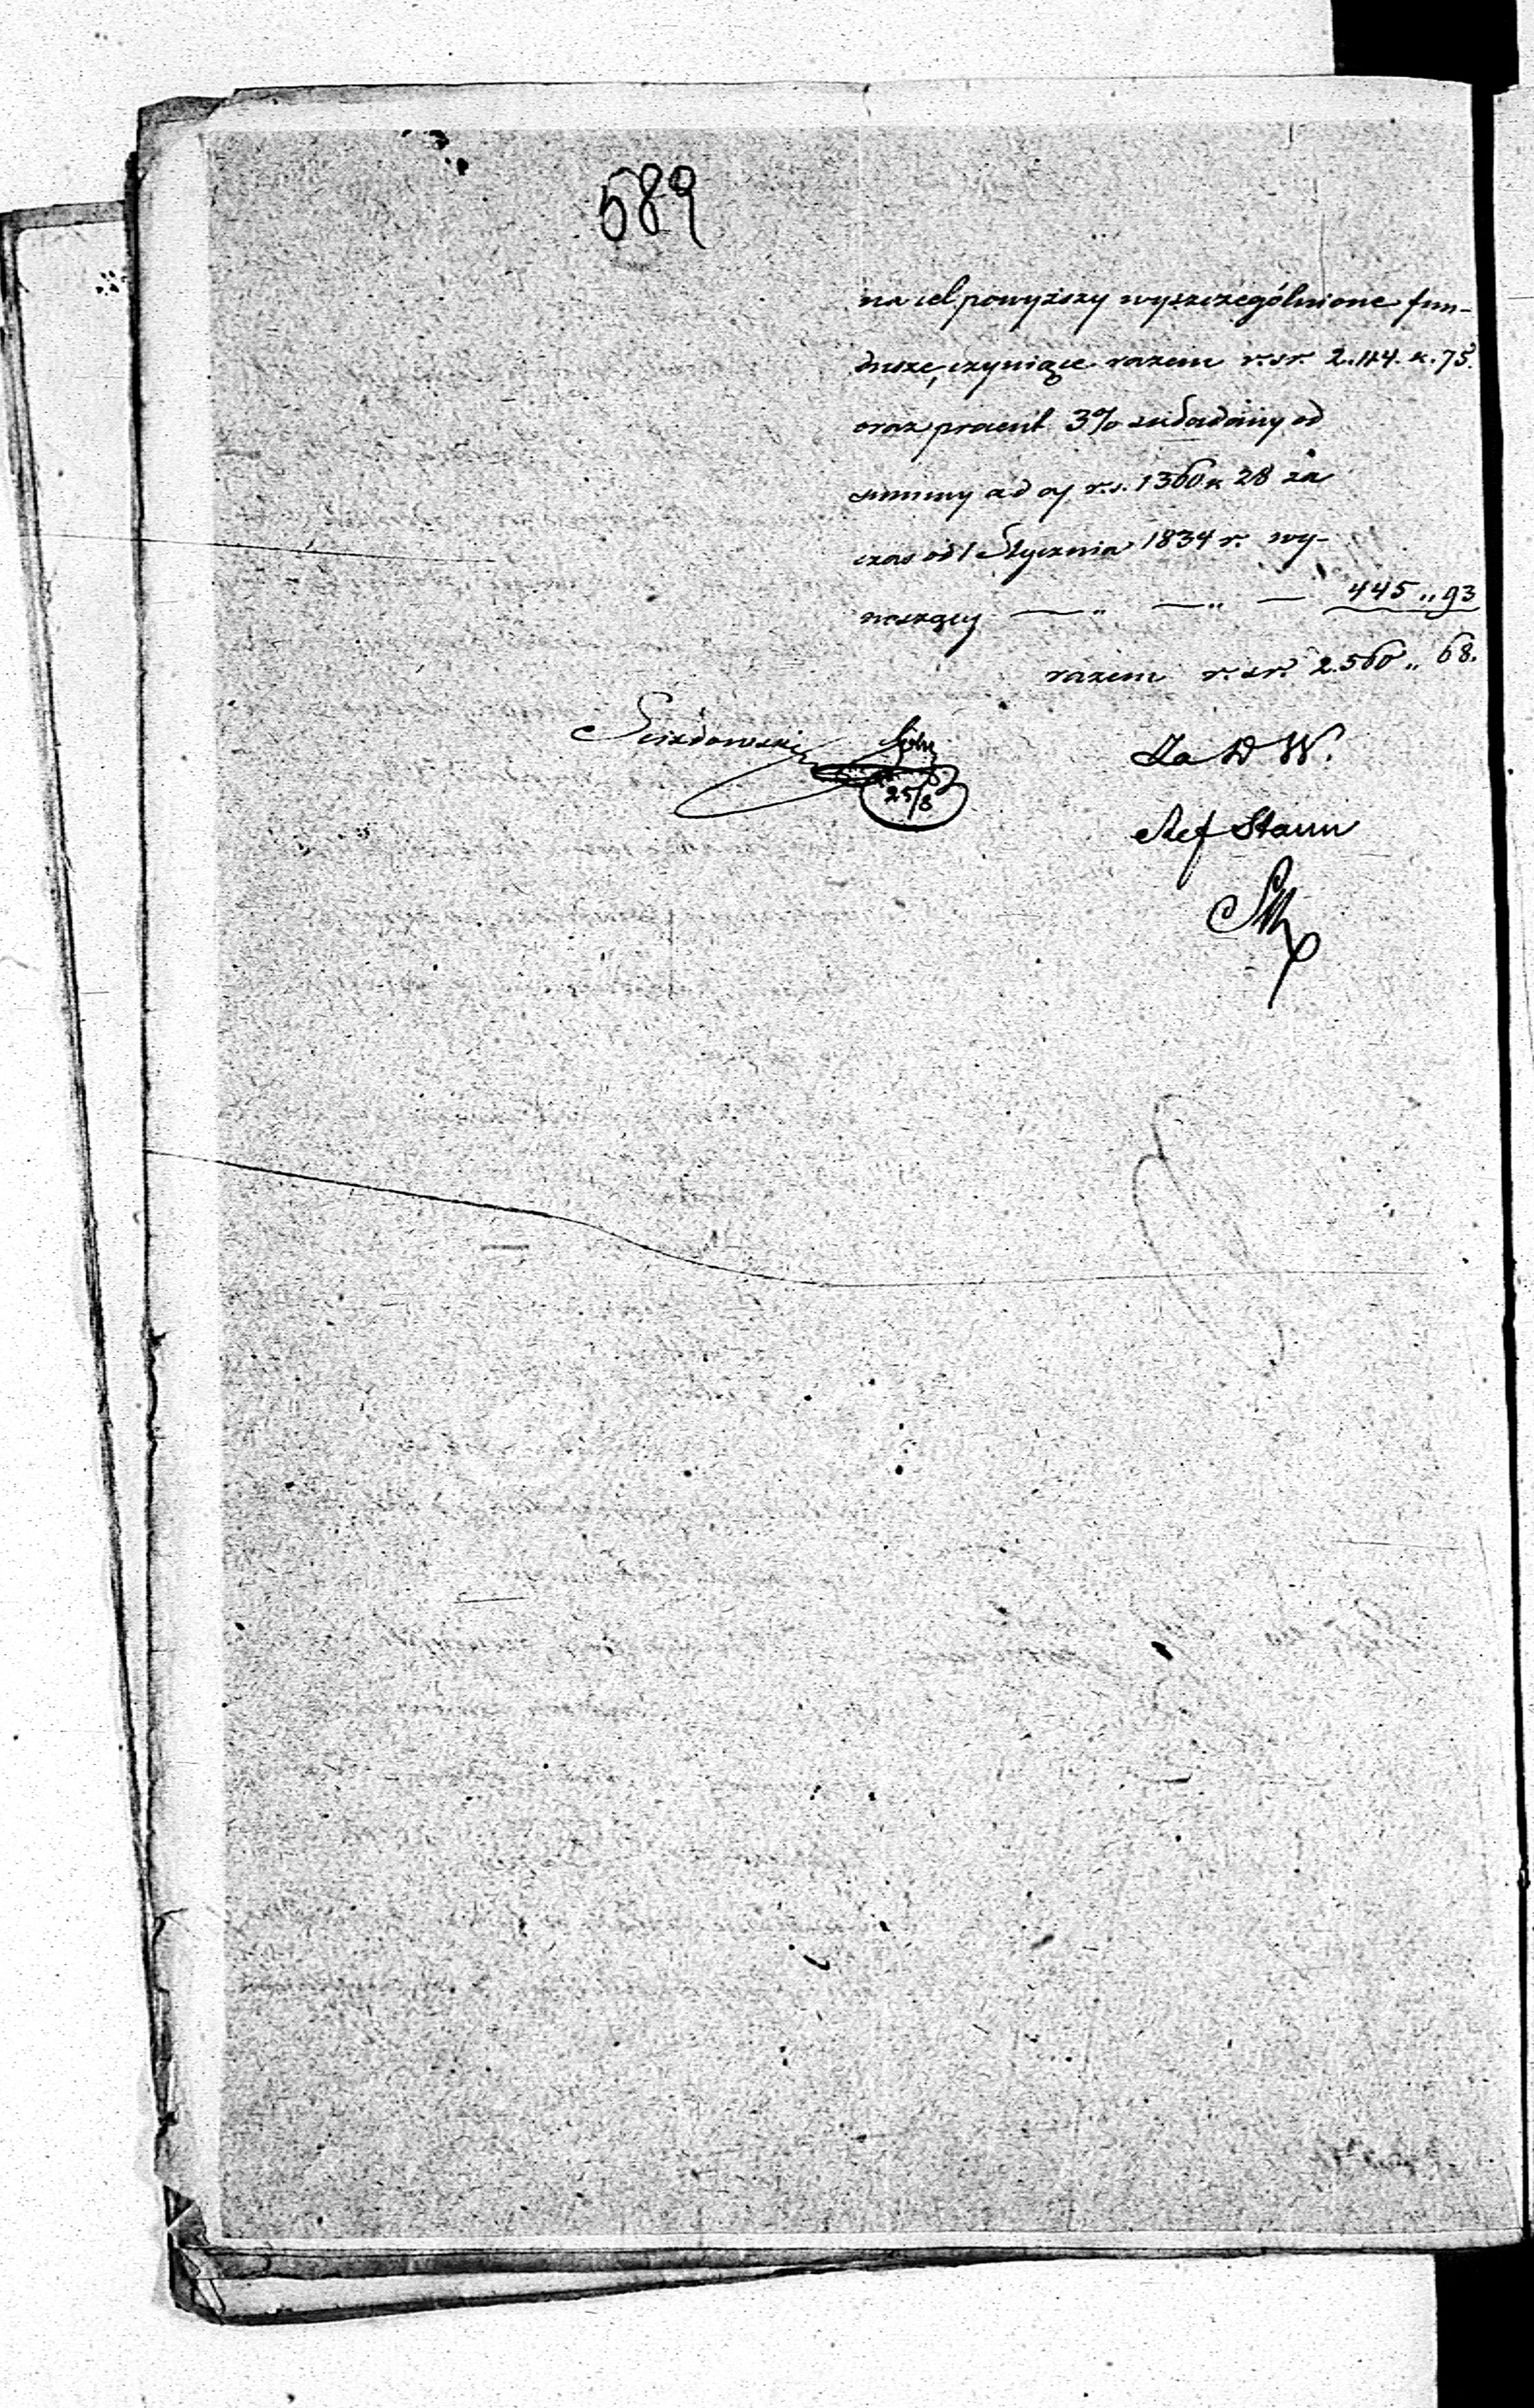 589
na cel powyższy wyszczególnione fun-
dusze, czyniące razem r. sr. 2.114. k. 75.
oraz procent 3% składany od
summy ad a) r. s. 1360 k 28 za
czas od 1 Stycznia 1834 r. wy-
noszący — „ — „ — 445 „ 93
razem r. sr. 2.560 „ 68.
Za D W.
25/8
Ref Stanu